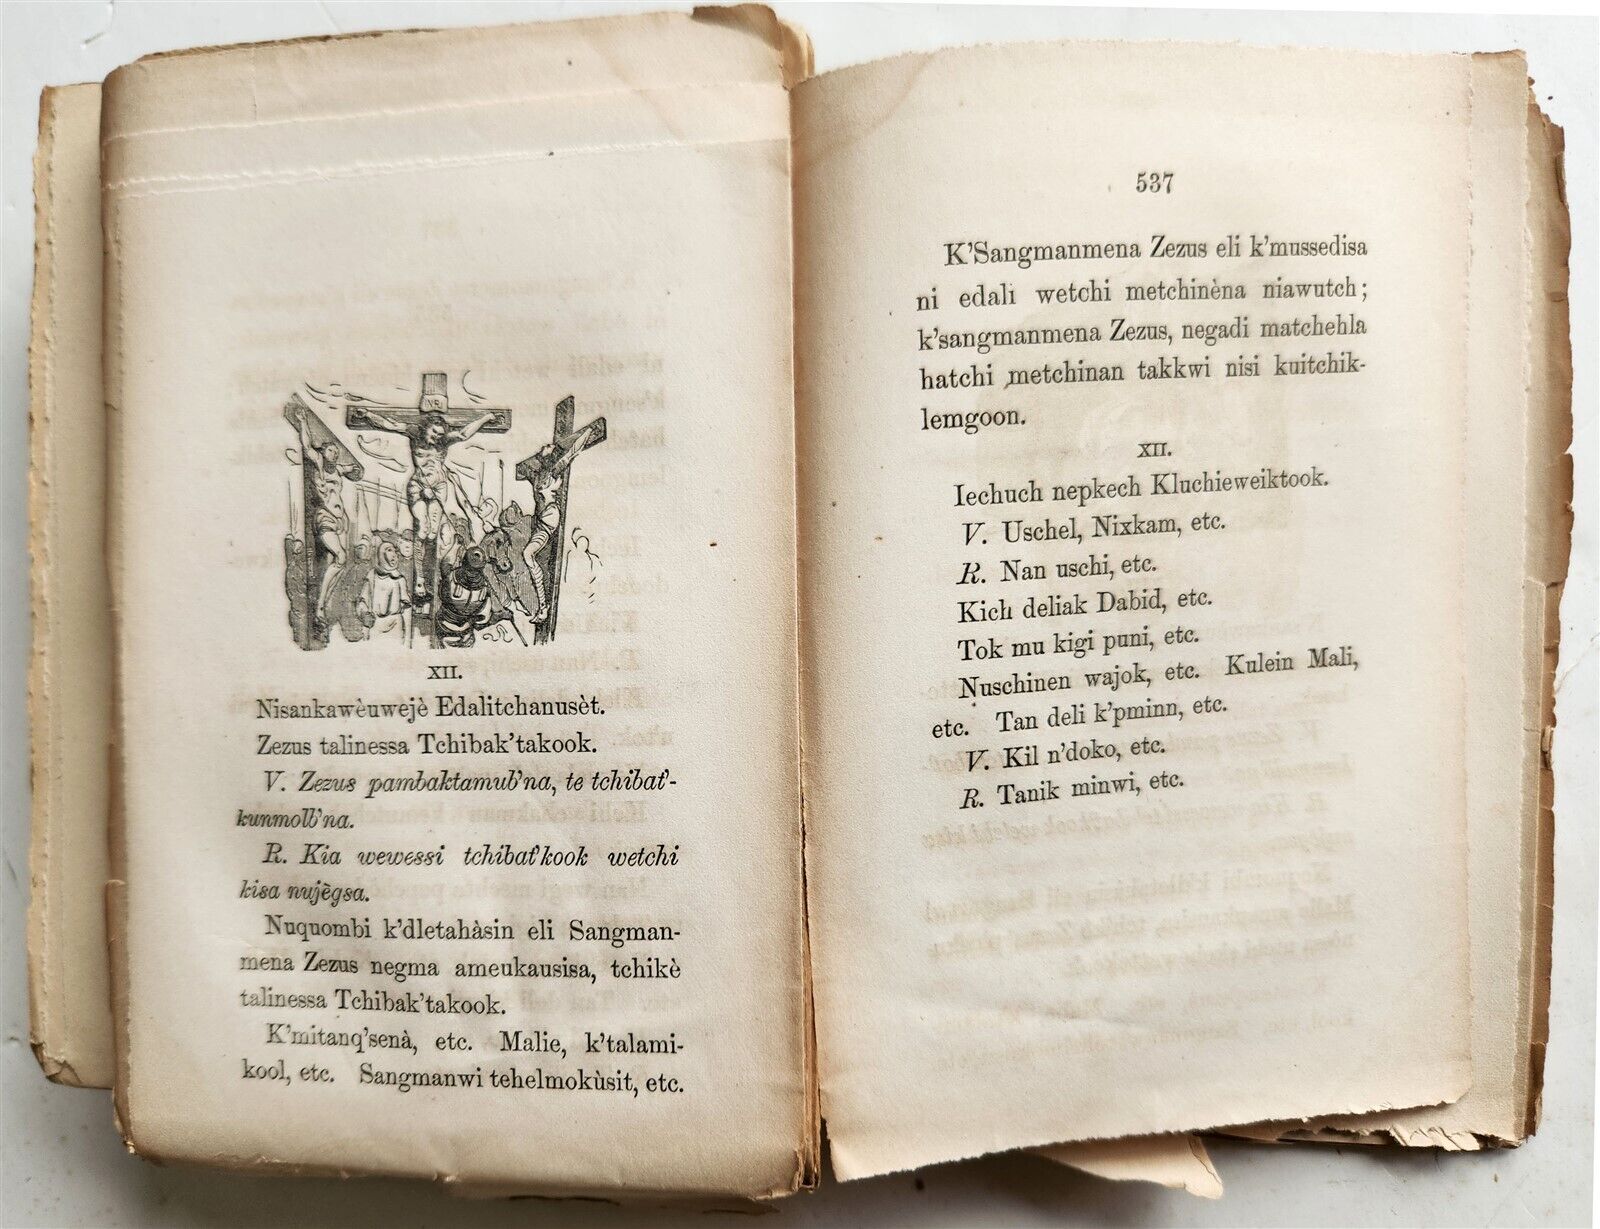 INRI
XII.
Nisankawèuwejè Edalitchanusèt.
Zezus talinessa Tchibak'takook.
V. Zezus pambaktamub'na, te tchibat'-
kunmolb'na.
R. Kia wewessi tchibat'kook wetchi
kisa nujègsa.
Nuquombi k'dletahàsin eli Sangman-
mena Zezus negma ameukausisa, tchikè
talinessa Tchibak'takook.
K'mitanq'senà, etc. Malie, k'talami-
kool, etc. Sangmanwi tehelmokùsit, etc.
537
K'Sangmanmena Zezus eli k'mussedisa
ni edali wetchi metchinèna niawutch;
k'sangmanmena Zezus, negadi matchehla
hatchi metchinan takkwi nisi kuitchik-
lemgoon.
XII.
Iechuch nepkech Kluchieweiktook.
V. Uschel, Nixkam, etc.
R. Nan uschi, etc.
Kich deliak Dabid, etc.
Tok mu kigi puni, etc.
Nuschinen wajok, etc. Kulein Mali,
etc. Tan deli k'pminn, etc.
V. Kil n'doko, etc.
R. Tanik minwi, etc.